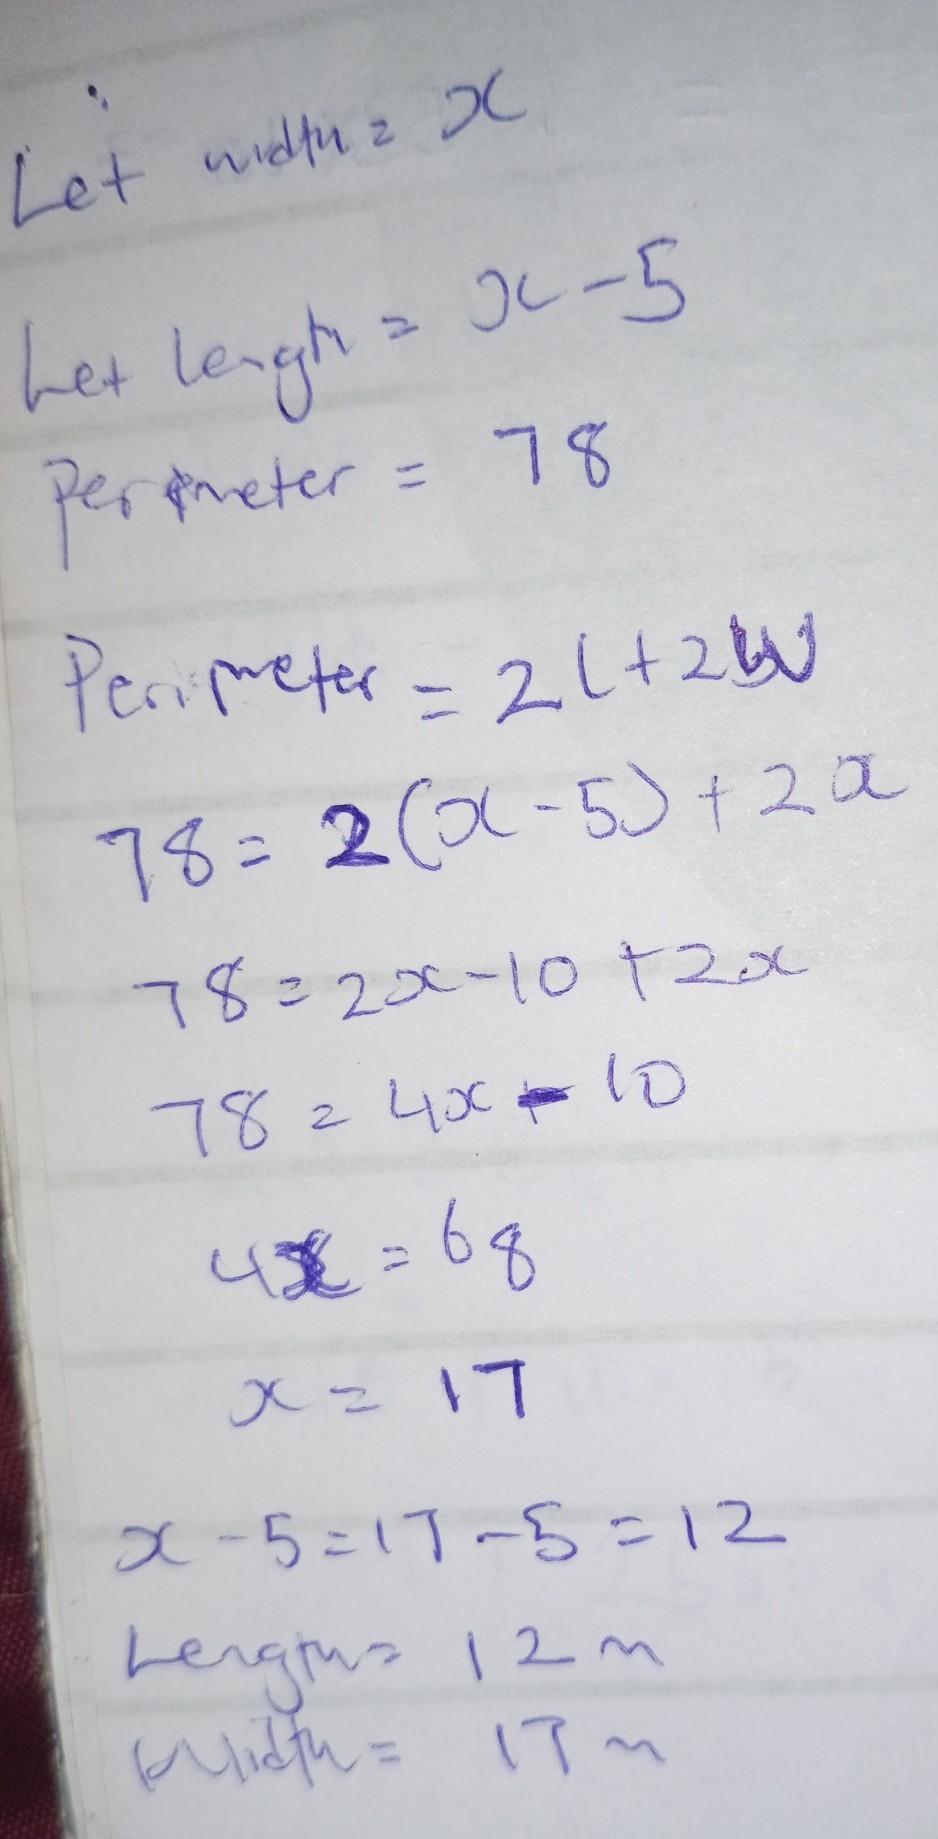 Let width = x
Let length = x - 5
Perimeter = 78
Perimeter = 2l + 2W
78 = 2(x - 5) + 2x
78 = 2x - 10 + 2x
78 = 4x - 10
4x = 68
x = 17
x - 5 = 17 - 5 = 12
Length = 12 m
Width = 17 m